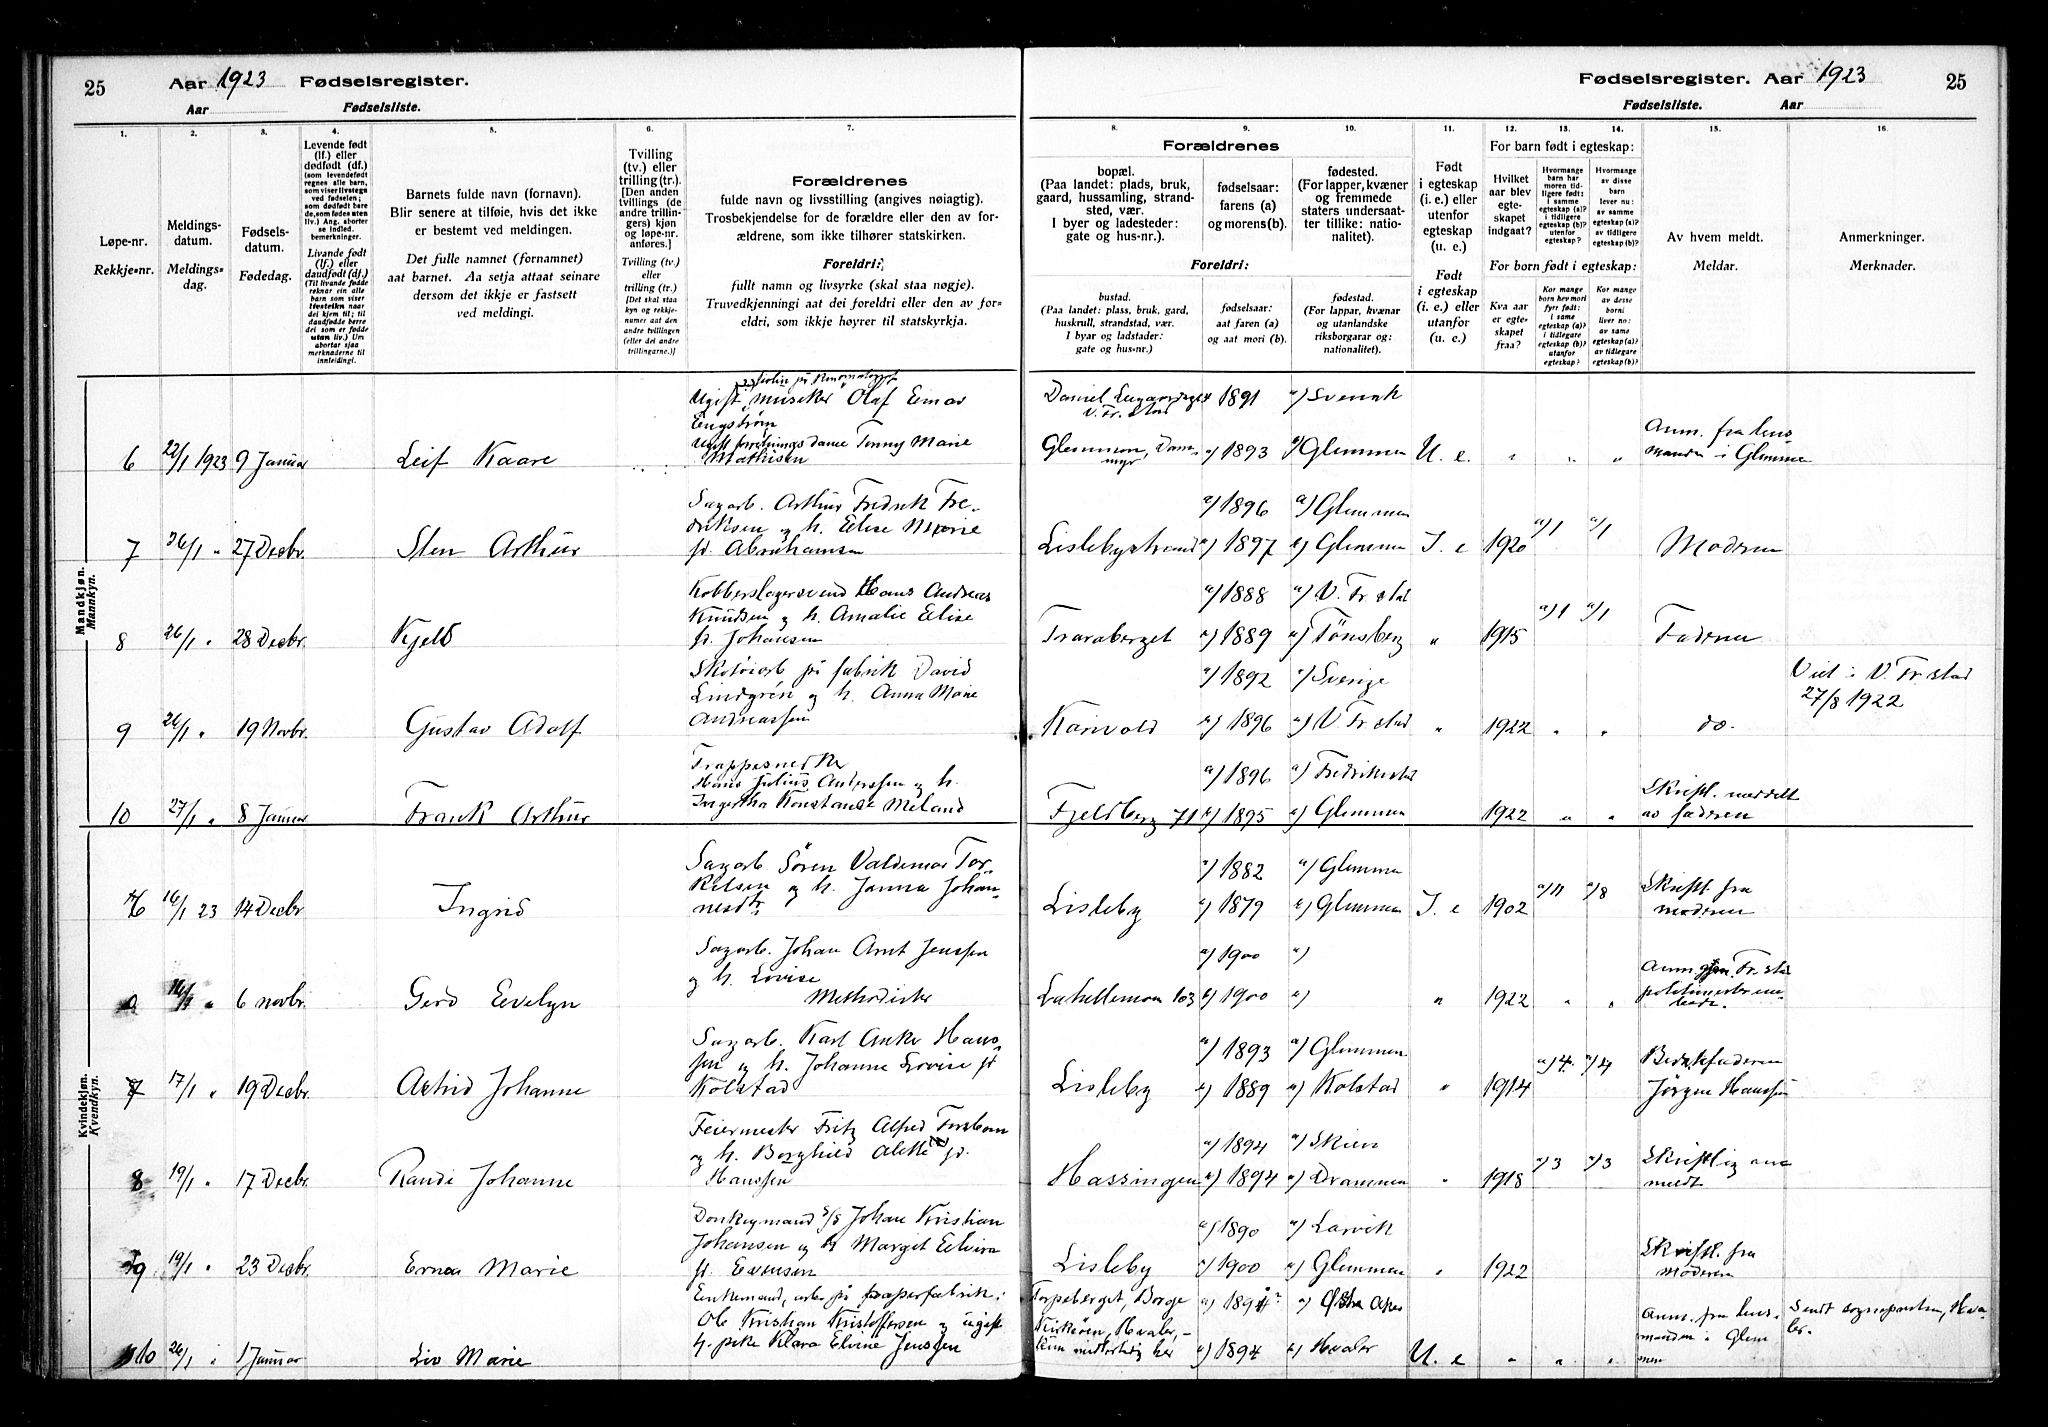 25
Aar 1923 Fødselsregister.
Aar Fødselsliste.
Fødselsregister. Aar 1923
25
Fødselsliste. Aar
1. 2. 3. 4. 5. 6. 7. 8. 9. 10. 11. 12. 13. 14. 15. 16.
Løpe-nr.
Rekkje-nr.
Meldings-
datum.
Meldings-
dag.
Fødsels-
datum.
Fødedag.
Levende født
(lf.) eller
dødfødt (df.)
(som levendefødt
regnes alle barn,
som viser livstegn
ved fødselen;
som dødfødt bare
de, som fødes uten
liv.) Ang. aborter
se indled.
bemerkninger.
Livande født
(lf.) eller
daudfødt (df.)
(Til livande fødde
reknar ein alle
barn som viser
livsteikn naar
dei kjem til; til
daudfødde berre
dei som er fødde
utan liv.) Um
abortar sjaa
merknaderne til
innleiding!
Barnets fulde navn (fornavn).
Blir senere at tilføie, hvis det ikke
er bestemt ved meldingen.
Det fulle namnet (fornamnet)
aat barnet. Aa setja attaat seinare
dersom det ikkje er fastsett
ved meldingi.
Tvilling
(tv.) eller
trilling (tr.).
[Den anden
tvillings (de
andre trillin-
gers) kjøn
og løpe-nr.
anføres.]
Tvilling (tv.)
eller
trilling (tr.)
[Det skal staa
kyn og rekkje-
numer aat den
andre tvillingen
(eller dei andre
trillingarne.)]
Forældrenes
fulde navn og livsstilling (angives nøiagtig).
Trosbekjendelse for de forældre eller den av for-
ældrene, som ikke tilhører statskirken.
Foreldri:
fullt namn og livsyrke (skal staa nøgje).
Truvedkjenningi aat dei foreldri eller den av for-
eldri, som ikkje høyrer til statskyrkja.
Forældrenes
bopæl.
(Paa landet: plads, bruk,
gaard, hussamling, strand-
sted, vær.
I byer og ladesteder:
gate og hus-nr.).
fødselsaar:
farens (a)
og morens (b).
fødested.
(For lapper, kvæner
og fremmede
staters undersaat-
ter tillike: natio-
nalitet).
Foreldri:
bustad.
(Paa landet: plass, bruk, gard,
huskrull, strandstad, vær.
I byar og ladstader:
gate og hus-nr.)
fødselsaar:
aat faren (a)
og aat mori (b).
fødestad.
(For lappar, kvænar
og utanlandske
riksborgarar og:
nationalitet).
Født
i egteskap
(i. e.) eller
utenfor
egteskap
(u. e.)
Født
i egteskap
(i. e.) eller
utanfor
(u. e.)
For barn født i egteskap:
Hvilket
aar blev
egte-
skapet
indgaat?
Hvormange
barn har
moren tid-
ligere født:
i samme
egteskap (a)?
i tidligere
egteskap (b)?
utenfor
egteskap?
Hvormange
av disse
barn
lever nu:
av samme
egteskap (a)?
av tidligere
egteskap (b)?
For born født i egteskap:
Kva aar
er egte-
skapet
fraa?
Kor mange
born hev mori
fyrr født:
i same
egteskap (a)?
i tidlegare
egteskap (b)?
utanfor
egteskap?
Kor mange
av desse
borni
liver no:
av same
egteskap (a)?
av tidlegare
egteskap (b)?
Av hvem meldt.
Meldar.
Anmerkninger.
Merknader.
Mandkjøn.
Mannkyn.
6 22/1 1923 9 Januar Leif Kaare
Ugift musiker Olaf Einar
Engstrøm
Ugift forretningsdame Fanny Marie
Mathisen
V. Fr.stad a) 1891 a) Svensk
Glemmen, b) 1893 b) Glemmen U. e. " " "
Anm. fra lens
manden i Glemme
7 26/1 " 27 Decbr. Sten Arthur
Sagarb. Arthur Fredrik Fre-
driksen og h. Elise Marie
f. Abrahamsen
Lislebystrand a) 1896 a) Glemmen
b) 1897 b) Glemmen I. e 1920 a/1 a/1 Moderen
8 26/1 " 28 Decbr. Kjell
Kobberslagersvend Hans Andreas
Knudsen og h. Amalie Elise
f. Johansen
Traraberget a) 1888 a) V. Fr.stad
b) 1889 b) Tønsberg " 1915 a/1 a/1 Faderen
9 26/1 " 19 Novbr. Gustav Adolf
Skotøiarb på fabrik David
Lindgrén og h. Anna Marie
Andreassen
a) 1892 a) Sverige
b) 1896 b) V. Fr.stad " 1922 " " do.
Viet i V. Fr.stad
27/8 1922
10 27/1 " 8 Januar Frank Arthur
Trappesnedker
Hans Julius Anderssen og h.
Ingertha Konstanse Meland
Fjeldberg 71 a) 1896 a) Fredrikstad
b) 1895 b) Glemmen 1922 " "
Skriftl. meddelt
av faderen
Kvindekjøn.
Kvendkyn.
6 16/1 23 14 Decbr Ingrid
Sagarb Søren Valdemar Tor-
kelsen og h. Janna Johan-
nesdtr.
Lisleby a) 1882 a) Glemmen
b) 1879 b) Glemmen I. e 1902 a/11 a/8
Skriftl. fra
moderen
16/1 " 6 novbr. Gerd Evelyn
Sagarb. Johan Arnt Jenssen
og h. Lovise
Methodister
103 a) 1900 a)
b) 1900 b) " 1922 " "
Anm. Fr.stad
7 17/1 " 19 Decbr. Astrid Johanne
Sagarb. Karl Anker Hans-
sen og h. Johanne Lovise f.
Kolstad
Lisleby a) 1893 a) Glemmen
b) 1889 b) Kolstad " 1914 a/4. a/4
Bedstefaderen
Jørgen Hanssen
8 19/1 " 17 Decbr. Randi Johanne
Feiermester Fritz Alfred
og h. Borghild Alette f.
Hanssen
Hassingen a) 1894 a) Skien
b) 1894 b) Drammen " 1918 a/3 a/3
Skriftlig an-
meldt
9 19/1 " 23 Decbr. Erna Marie
Donkeymand s/s Johan Kristian
Johansen og h Margit Elvira
f. Evensen
Lisleby a) 1890 a) Larvik
b) 1900 b) Glemmen " 1922
Skriftl. fra
Moderen
10 26/1 " 1 Januar Liv Marie
Enkemand, arb. på papirfabrik:
Ole Kristian Kristoffersen og ugift
pike Klara Elvine Jenssen
Torpeberget, Borge
Kirkøen, Hvaler,
a) 1894
b) 1894 b) Hvaler U. e " " "
Anm. fra lens-
manden i Glem
men
Sendt sogneprsten, Hva-
ler.